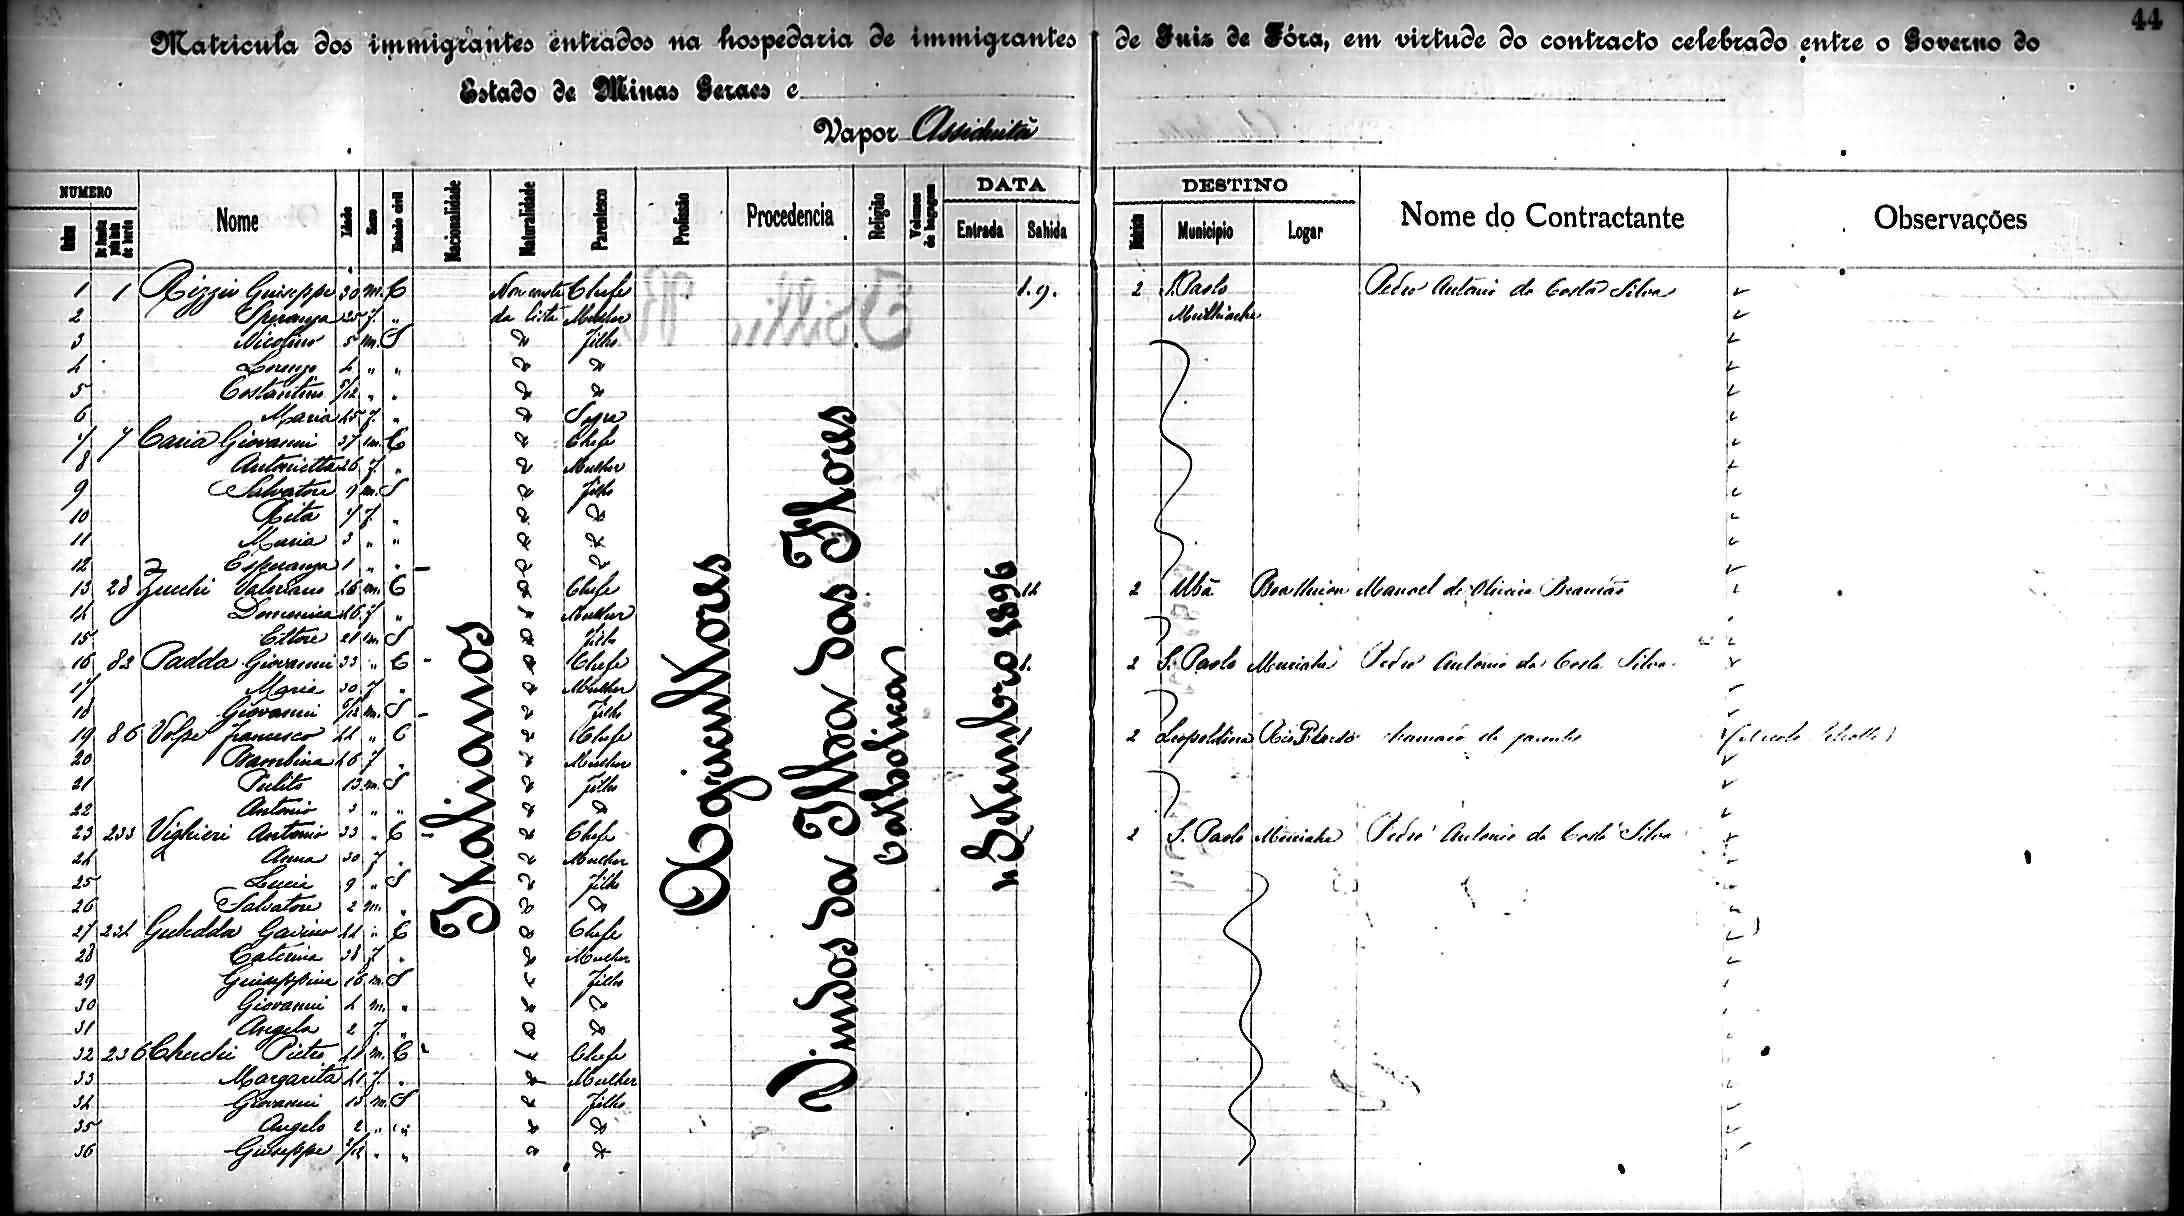 44
Matricula dos immigrantes entrados na hospedaria de immigrantes de Juiz de Fóra, em virtude do contracto celebrado entre o Governo do
Estado de Minas Geraes e
Vapor Assiduità
NUMERO Nome Idade Sexo Estado civil Nacionalidade Naturalidade Parentesco Profissão Procedencia Religião Volumes de bagagem DATA Entrada Sahida DESTINO Municipio Logar Nome do Contractante Observações
Ordem
Italianos
Agricultores
Vindos da Ilha das Flores
catholica
Setembro 1896
1 1 Rizzio Giuseppe 30 m. C Non consta Chefe 1. 9. 2 S. Paolo Pedro Antonio da Costa Silva
2 Speranza 25 f. " da lista Mulher Muthiache
3 Nicolino 5 m. S Filho
4 Lorenzo 4 " "
5 Costantino 5/12 " "
6 Maria 45 f. " Sogra
7 7 Caria Giovanni 37 m. C Chefe
8 Antonietta 26 f. " Mulher
9 Salvatore 9 m. S Filho
10 Rita 7 f. "
11 Maria 3 " "
12 Esperanza 1 " "
13 28 Zucchi Valeriano 46 m. C Chefe 12 2 Ubá Boa União Manoel de Oliveira Brandão
14 Domenica 46 f. " Mulher
15 Ettore 21 m. S Filho
16 83 Padda Giovanni 33 " C Chefe 1. 2 S. Paolo Muriahé Pedro Antonio da Costa Silva
17 Maria 30 f. " Mulher
18 Giovanni 6/12 m. S Filho
19 86 Volpe Francesco 41 " C Chefe 1 2 Leopoldina Rio Pardo chamado de parentes
20 Bambina 46 f. " Mulher
21 13 m. S Filho
22 Antonio 3 " "
23 233 Vighieri Antonio 33 " C Chefe 2 S. Paolo Muriahe Pedro Antonio da Costa Silva
24 Anna 30 f. " Mulher
25 Lucia 9 " S Filho
26 Salvatore 2 m. "
27 234 Gavino 41 " C Chefe
28 Caterina 38 f. " Mulher
29 Giuseppina 16 m. S Filho
30 Giovanni 4 m. "
31 Angela 2 f. "
32 236 Cherchi Pietro 41 m. C Chefe
33 Margarita 41 f. " Mulher
34 Giovanni 13 m. S Filho
35 Angelo 2 " "
36 Giuseppe 2/12 " "